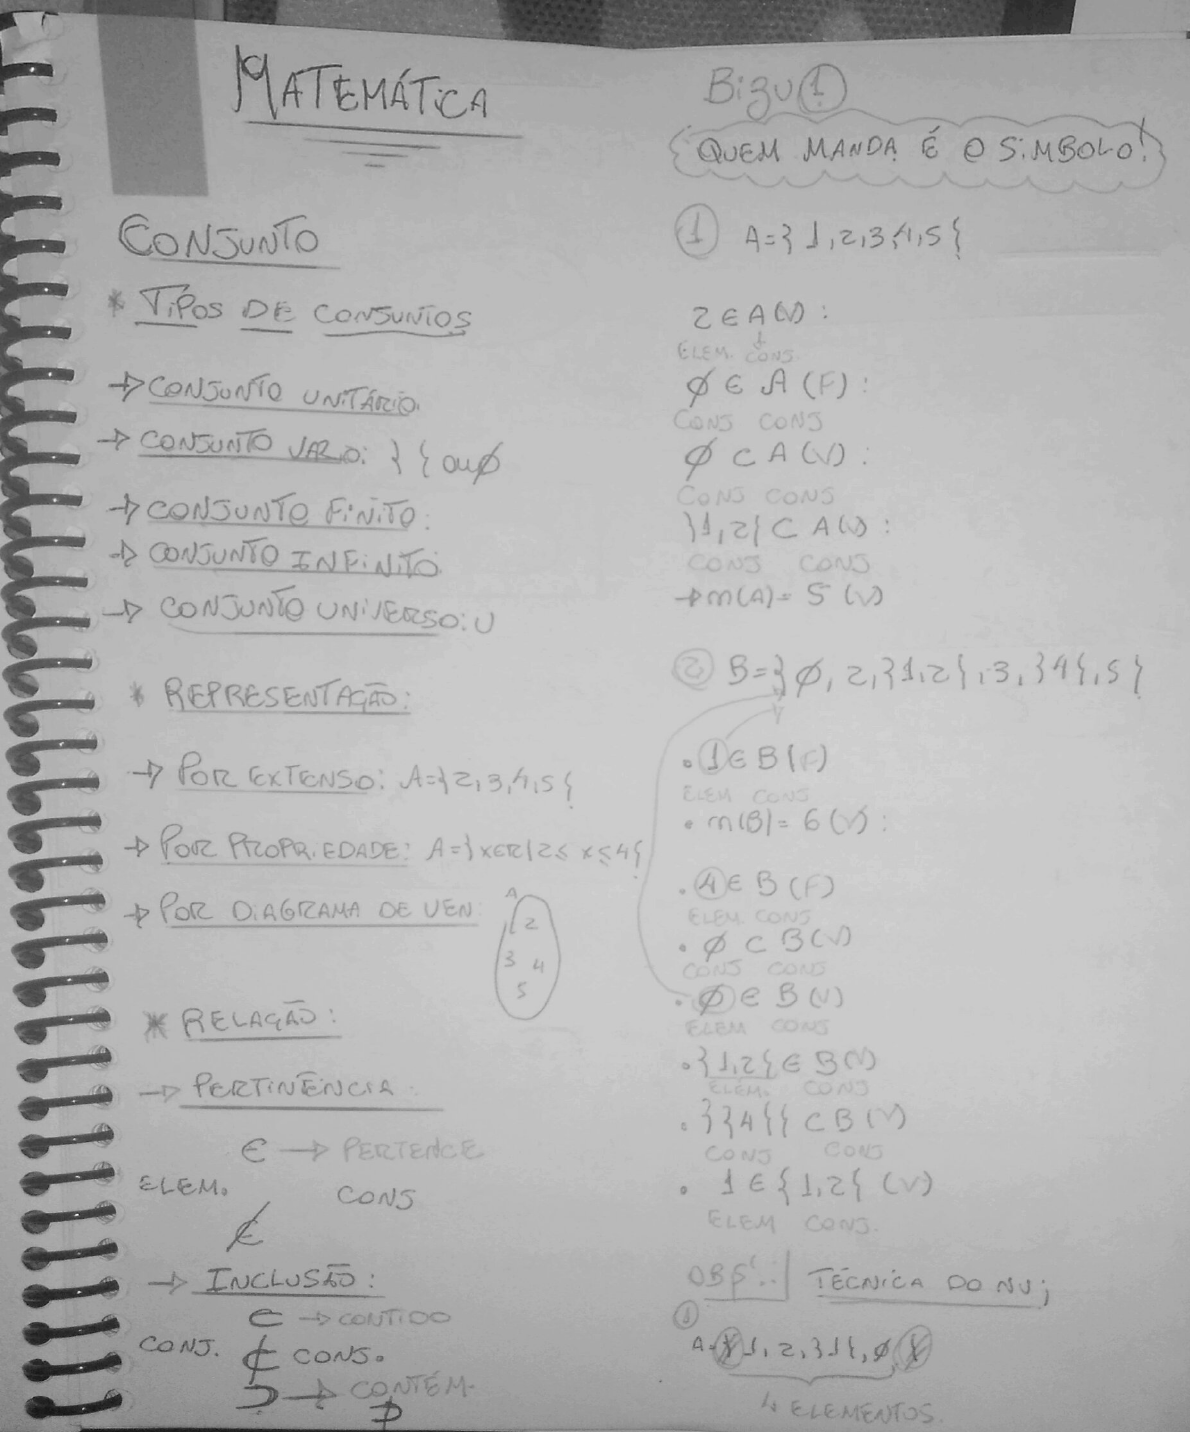 MATEMÁTICA
CONJUNTO
* TIPOS DE CONJUNTOS
→ CONJUNTO UNITÁRIO.
→ CONJUNTO VAZIO: } { ou ∅
→ CONJUNTO FINITO:
→ CONJUNTO INFINITO
→ CONJUNTO UNIVERSO: U
* REPRESENTAÇÃO:
→ POR EXTENSO: A=}2,3,4,5{
→ POR PROPRIEDADE: A=}x∈R|2≤ x≤4{
→ POR DIAGRAMA DE VEN:
A
2
3 4
5
* RELAÇÃO:
→ PERTINÊNCIA
∈ → PERTENCE
ELEM. CONJ
∉
→ INCLUSÃO:
⊂ → CONTIDO
CONJ. ⊄ CONJ.
⊃ → CONTÉM.
⊅
Bizu 1
QUEM MANDA É O SIMBOLO!
1 A=} 1,2,3,4,5 {
2 ∈ A (V) :
ELEM. CONJ.
∅ ∈ A (F) :
CONJ CONJ
∅ ⊂ A (V) :
CONJ CONJ
}1,2{ ⊂ A (V) :
CONJ CONJ
→ n(A) = 5 (V)
2 B=} ∅, 2, }1,2{, 3, }4{, 5 {
• 1 ∈ B (F)
ELEM CONJ
• n(B) = 6 (V) :
• 4 ∈ B (F)
ELEM CONJ
• ∅ ⊂ B (V)
CONJ CONJ
• ∅ ∈ B (V)
ELEM CONJ
• {1,2{ ∈ B (V)
ELEM. CONJ
• }}4{{ ⊂ B (V)
CONJ CONJ
• 1 ∈ {1,2{ (V)
ELEM CONJ.
OBS: TÉCNICA DO NU;
1
A=}1,2,}1{,∅{
4 ELEMENTOS.